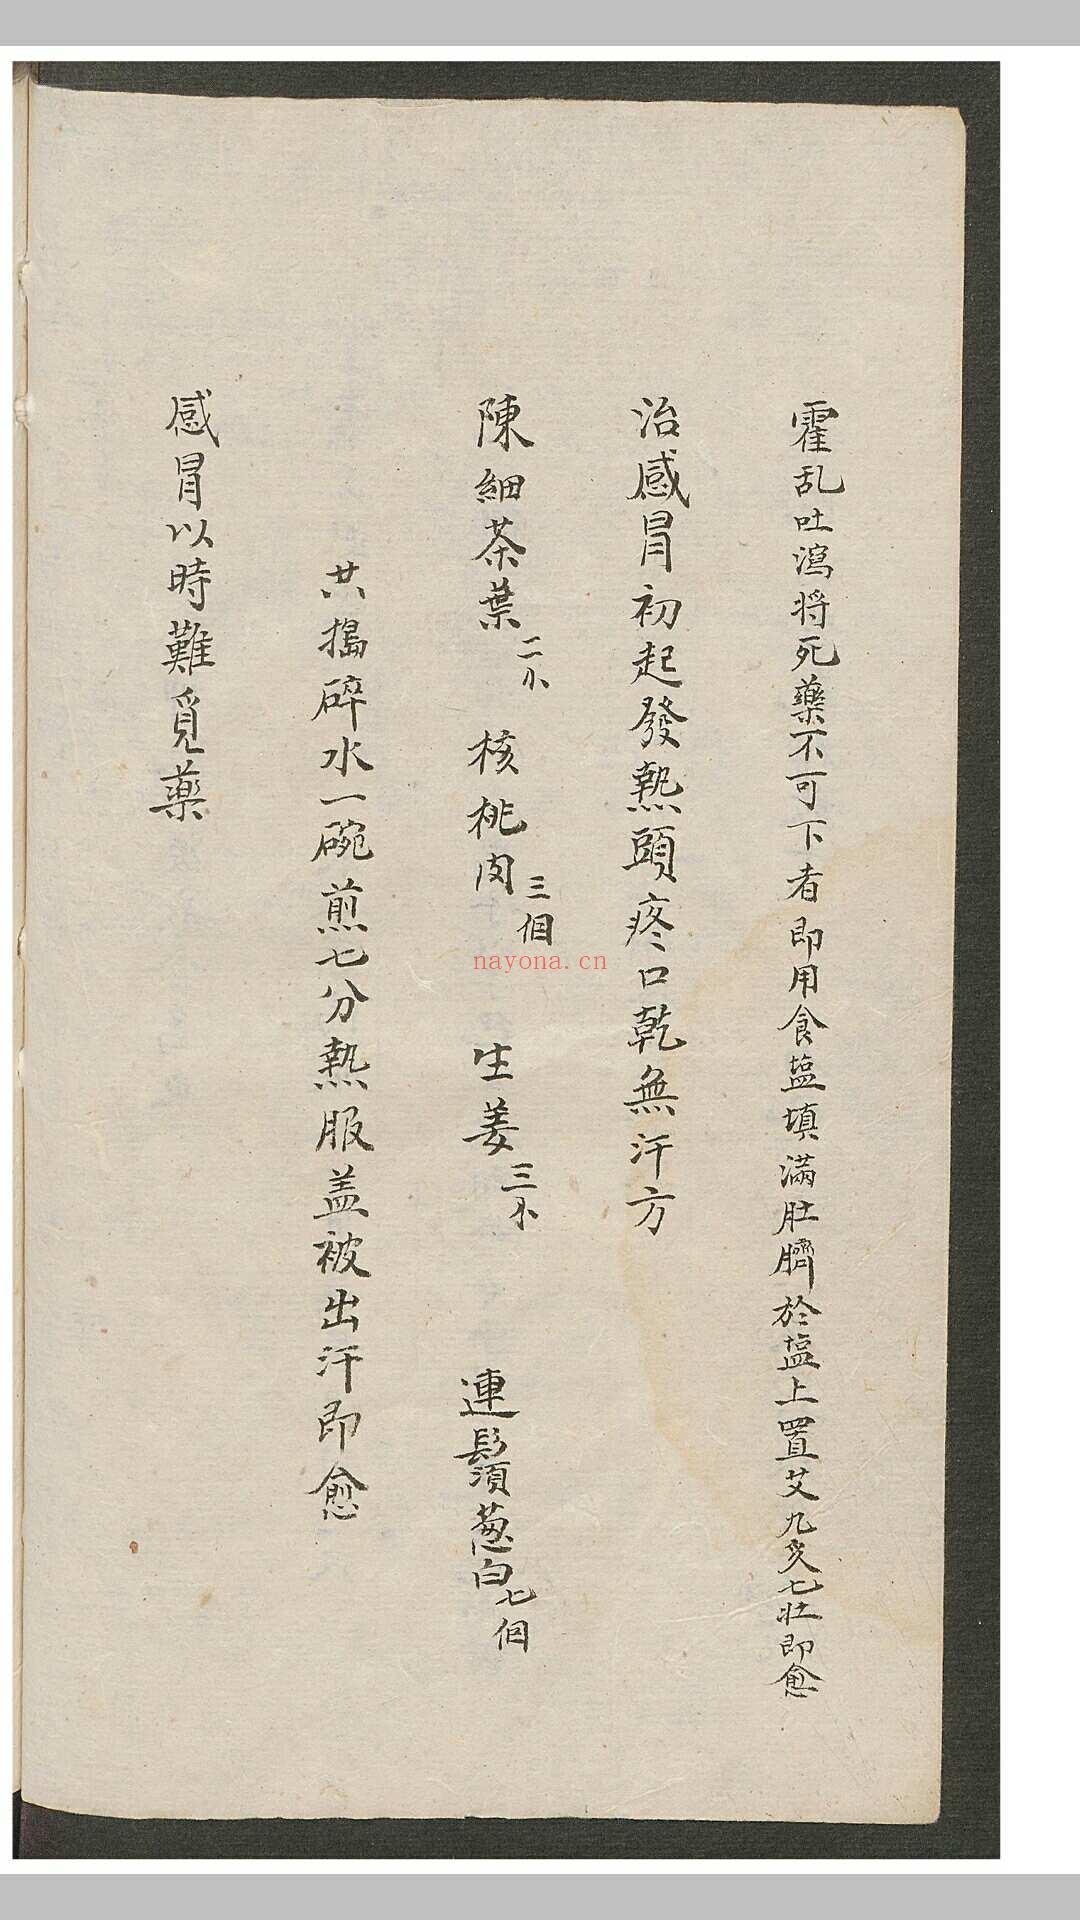 霍乱吐瀉将死藥不可下者即用食塩填滿肚臍於塩上置艾九炙七壯即愈
治感冒初起發熱頭疼口乾無汗方
陳細茶葉二小 核桃肉三個 生姜三小 連鬚葱白七個
共搗碎水一碗煎七分熱服盖被出汗即愈
感冒以時難覓藥
nayona.cn